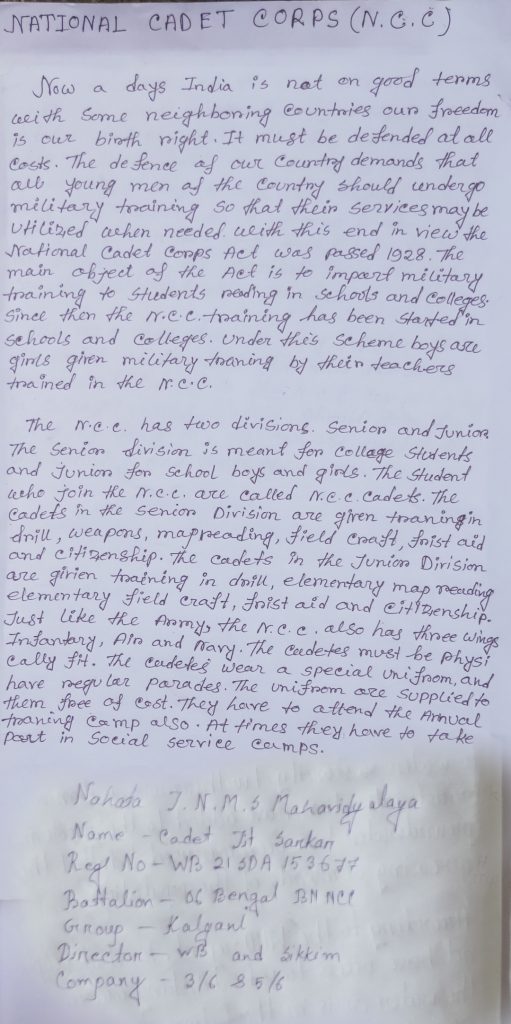 NATIONAL CADET CORPS (N.C.C)
Now a days India is not on good terms
with some neighboring countries our freedom
is our birth right. It must be defended at all
costs. The defence of our country demands that
all young men of the country should undergo
military training so that their services may be
utilized when needed with this end in view the
National Cadet Corps Act was passed 1928. The
main object of the Act is to impart military
training to students reading in schools and colleges.
Since then the N.C.C. training has been started in
schools and colleges. Under this scheme boys are
girls given military traning by their teachers
trained in the N.C.C.
The N.C.C. has two divisions. Senior and Junior
The Senior division is meant for collage students
and Junior for school boys and girls. The student
who join the N.C.C. are called N.C.C. cadets. The
cadets in the Senior Division are given traning in
drill, weapons, mapreading, field craft, frist aid
and citizenship. The cadets in the Junior Division
are givien training in drill, elementary map reading
elementary field craft, frist aid and citizenship.
Just like the Army, the N.C.C. also has three wings
Infantary, Air and Navy. The cadetes must be physi
cally fit. The cadetes wear a special unifrom, and
have regular parades. The unifrom are supplied to
them free of cost. They have to attend the Annual
traning camp also. At times they have to take
part in Social Service camps.
Nahata J.N.M.S Mahavidyalaya
Name - Cadet Sarkar
Regl No - WB 21 SDA 153677
Battalion - 06 Bengal BN NCC
Group - Kalyani
Director - WB and Sikkim
Company - 3/6 & 5/6